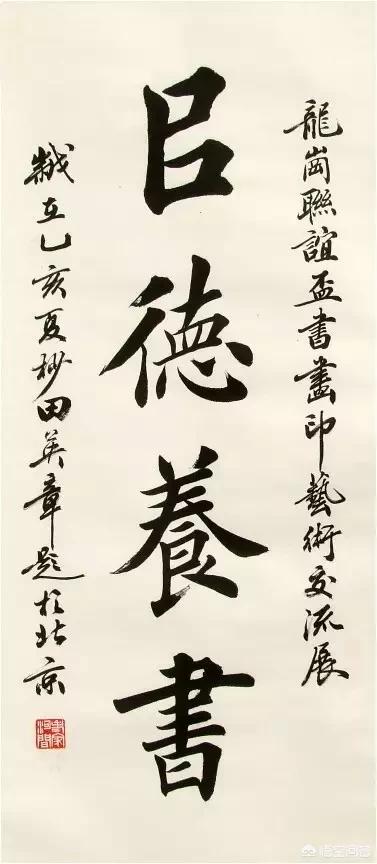 龍崗聯誼盃書畫印藝術交流展
㠯德養書
歲在乙亥夏杪田英章題於北京
悟空问答